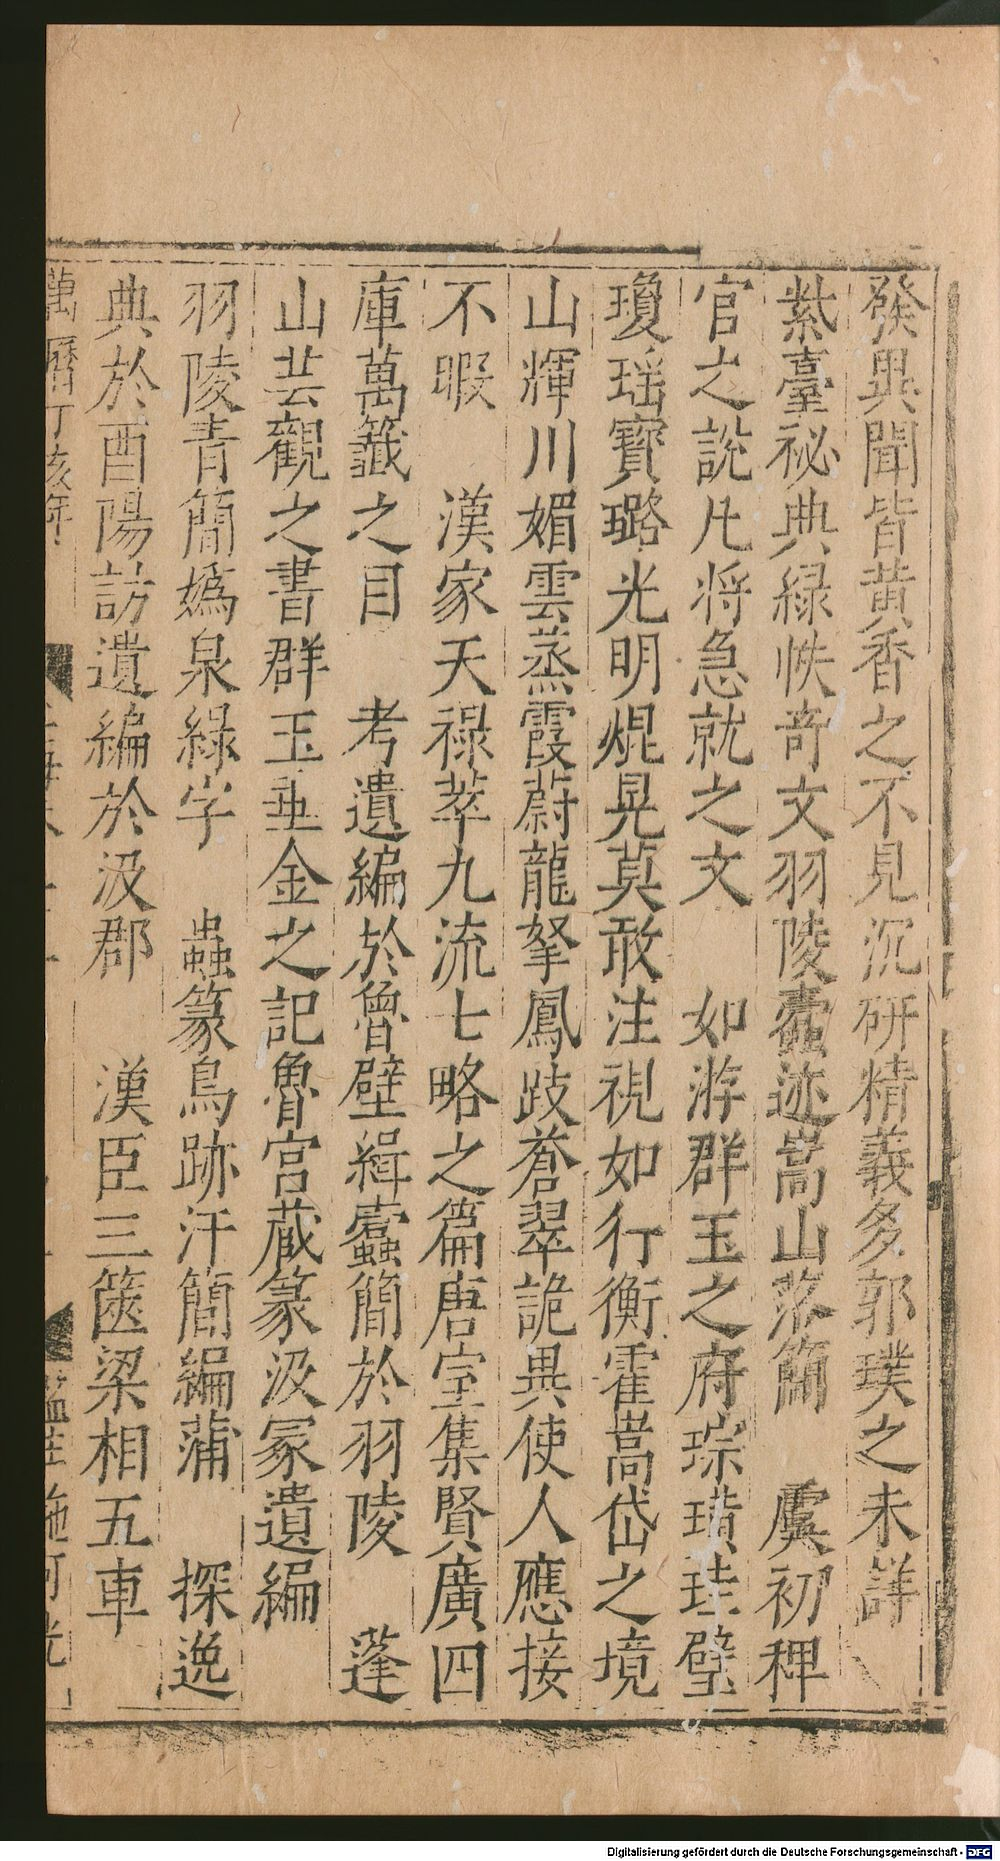 發異聞皆黄香之不見沉研精義多郭璞之未詳
紫臺祕典緑帙奇文羽陵蠹迹嵩山落簡　虞初稗
官之説凡将急就之文　如游群玉之府琮璜珪璧
瓊瑶寶璐光明焜晃莫敢注視如行衡霍嵩岱之境
山輝川媚雲蒸霞蔚龍拏鳳跂蒼翠詭異使人應接
不暇　漢家天禄萃九流七略之篇唐室集賢廣四
庫萬籖之目　考遺編於魯壁緝蠹簡於羽陵　蓬
山芸觀之書群玉垂金之記魯宫蔵篆汲冢遺編
羽陵青簡嬀泉緑字　蟲篆鳥跡汗簡編蒲　探逸
典於酉陽訪遺編於汲郡　漢臣三篋梁相五車
萬曆丁亥年
Digitalisierung gefördert durch die Deutsche Forschungsgemeinschaft - DFG